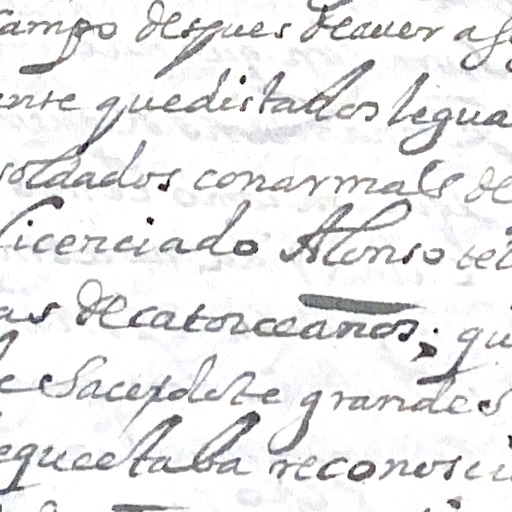 campo despues deaver a
ente quedistados legua
soldados conarmals de
licenciado Alonso te
as decatorceanos; qu
e Sacerdote grandes
equeetaba reconosci